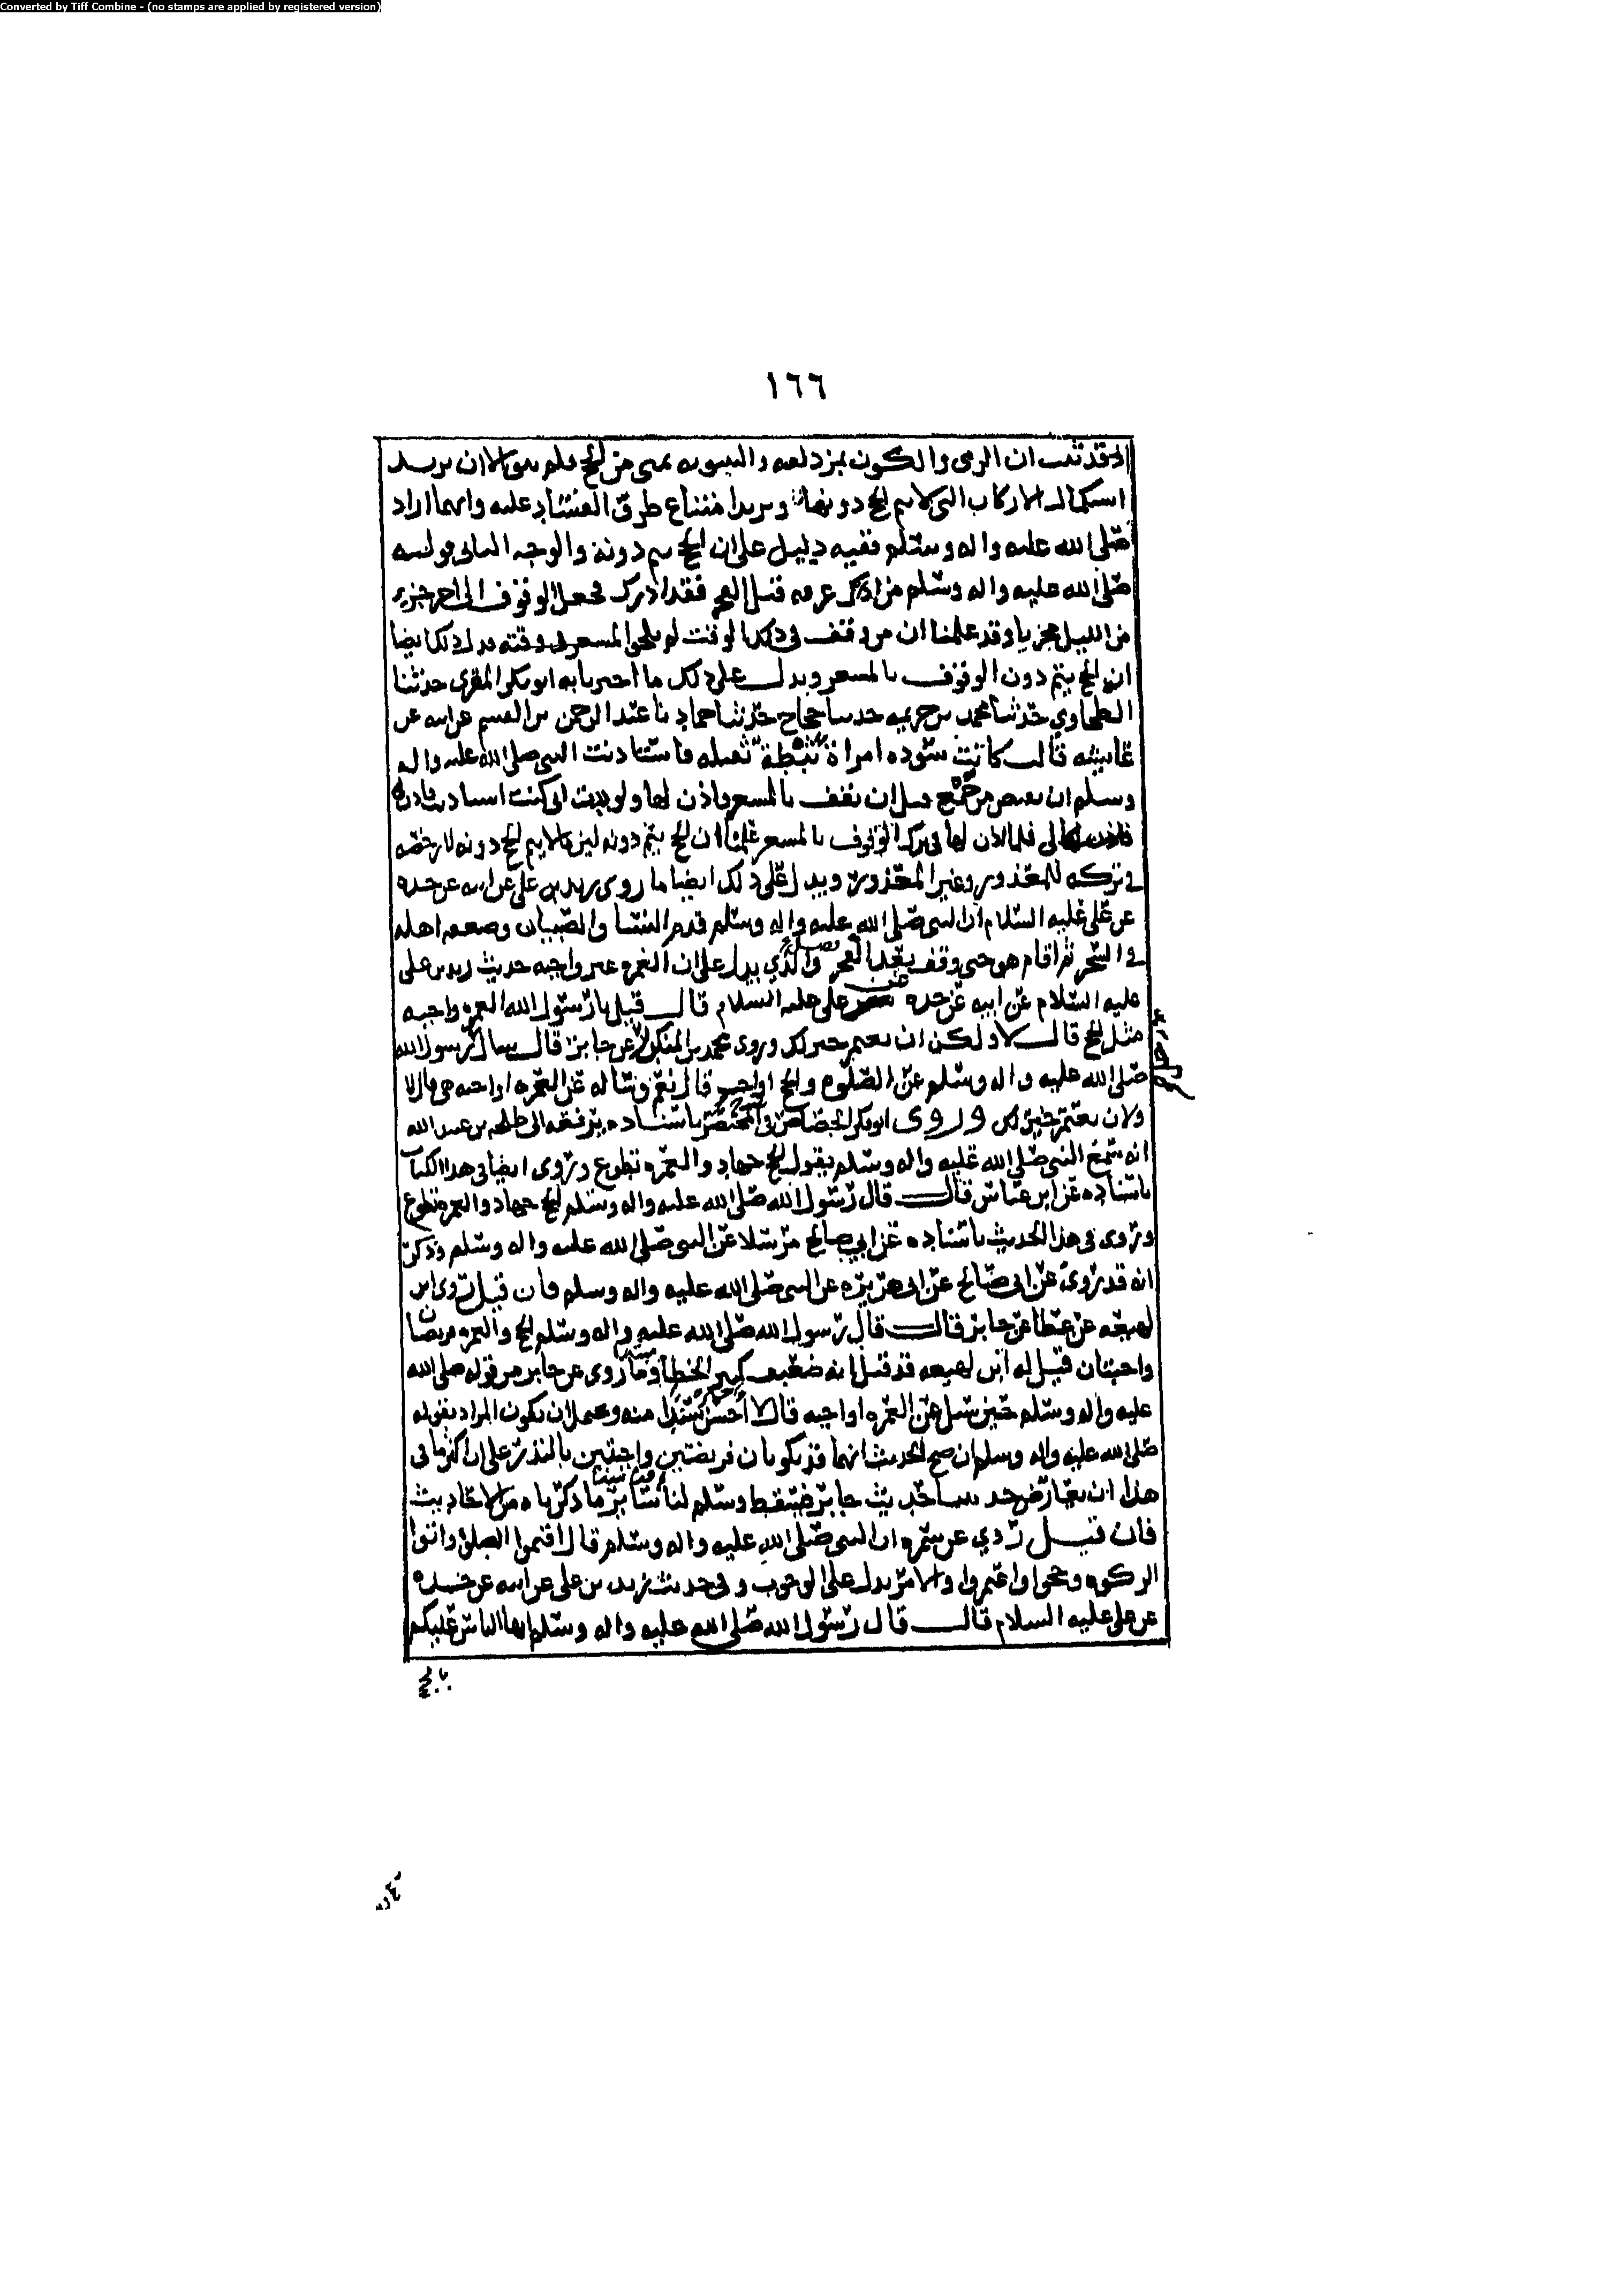 Converted by Tiff Combine - (no stamps are applied by registered version)
١٦٦
اذ قد ثبت ان الرمى والكون بمزدلفه والبيتوته بمنى من الحج فلم يبق الا ان يريد
استكمال الاركان التى لا يتم الحج دونها ويريد امتناع طرق الفساد عليه وايهما اراد
صلى الله عليه واله وسلم ففيه دليل على ان الحج يتم دونه والوجه الثانى قوله
صلى الله عليه واله وسلم من ادرك عرفه قبل الفجر فقد ادرك فجعل الوقوف الى اخر جزء
من الليل مجزيا وقد علمنا ان من وقف فى ذلك الوقت لم يلحق المشعر فى وقته فدل ذلك ايضا
ان الحج يتم دون الوقوف بالمشعر ويدل على ذلك ما اخبرنا به ابو بكر المقرى حدثنا
الطحاوي حدثنا محمد بن خزيمه حدثنا حجاج حدثنا حماد نا عبد الرحمن بن القسم عن ابيه عن
عائشه قالت كانت سوده امراة ثبطة ثقيله فاستاذنت النبى صلى الله عليه واله
وسلم ان تفيض من جمع قبل ان تقف بالمشعر فاذن لها ولوددت انى كنت استاذنته فاذن
لى فلما اذن لها فى ترك الوقوف بالمشعر علمنا ان الحج يتم دونه لان ما لا يتم الحج دونه لا رخصه
فى تركه للمعذور وغير المعذور ويدل على ذلك ايضا ما روى زيد بن على عن ابيه عن جده
عن على عليه السلام ان النبى صلى الله عليه واله وسلم قدم النسا والصبيان وضعفه اهله
فى السحر ثم اقام هو حتى وقف بعد الفجر فصل والذي يدل على ان العمره غير واجبه حديث زيد بن على
عليه السلام عن ابيه عن جده عن على عليه السلام قال قيل يا رسول الله العمره واجبه
مثل الحج قال لا ولكن ان تعتمر خير لك وروى محمد بن المنكدر عن جابر قال سال رجل رسول الله
صلى الله عليه واله وسلم عن الصلوه والحج اواجب قال نعم وساله عن العمره اواجبه هى قال لا
ولان تعتمر خير لك وروى ابو بكر الجصاص فى شرح المختصر باسناده يرفعه الى طلحه بن عبيد الله
انه سمع النبى صلى الله عليه واله وسلم يقول الحج جهاد والعمره تطوع وروى ايضا فى هذا الكتاب
باسناده عن ابن عباس قال قال رسول الله صلى الله عليه واله وسلم الحج جهاد والعمره تطوع
وروى فى هذا الحديث باسناده عن ابي صالح مرسلا عن النبى صلى الله عليه واله وسلم وذكر
انه قد روى عن ابى صالح عن ابى هريره عن النبى صلى الله عليه واله وسلم فان قيل روى ابن
لهيعه عن عطا عن جابر قال قال رسول الله صلى الله عليه واله وسلم الحج والعمره فريضتان
واجبتان قيل له ابن لهيعه قد قيل انه ضعيف كثير الخطا وما روى عن جابر من قوله صلى الله
عليه واله وسلم حين سئل عن العمره اواجبه قال لا احسن سندا منه ويحتمل ان يكون المراد بقوله
صلى الله عليه واله وسلم ان صح الحديث انهما قد يكونان فريضتين واجبتين بالنذر على ان اكثر ما فى
هذا ان يتعارض حديث جابر فيسقط وسلم لنا سائر ما ذكرناه من الاحاديث
فان قيل روي عن سمره ان النبى صلى الله عليه واله وسلم قال اقيموا الصلوة واتوا
الزكوه وحجوا واعتمروا والامر يدل على الوجوب وفى حديث زيد بن على عن ابيه عن جده
عن على عليه السلام قال قال رسول الله صلى الله عليه واله وسلم ايها الناس عليكم